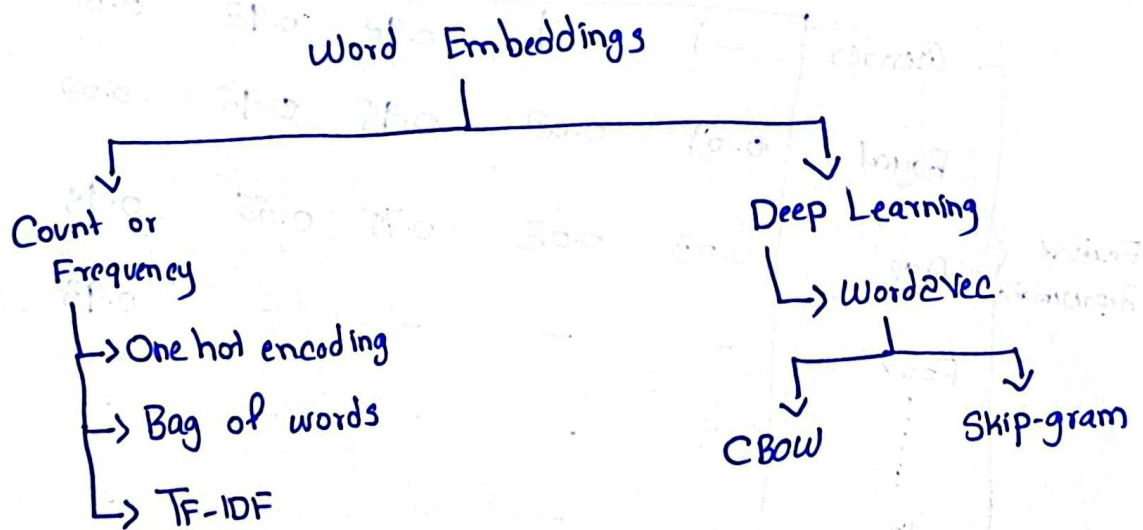 Word Embeddings
Count or
Frequency
One hot encoding
Bag of words
TF-IDF
Deep Learning
Word2Vec
CBOW
Skip-gram